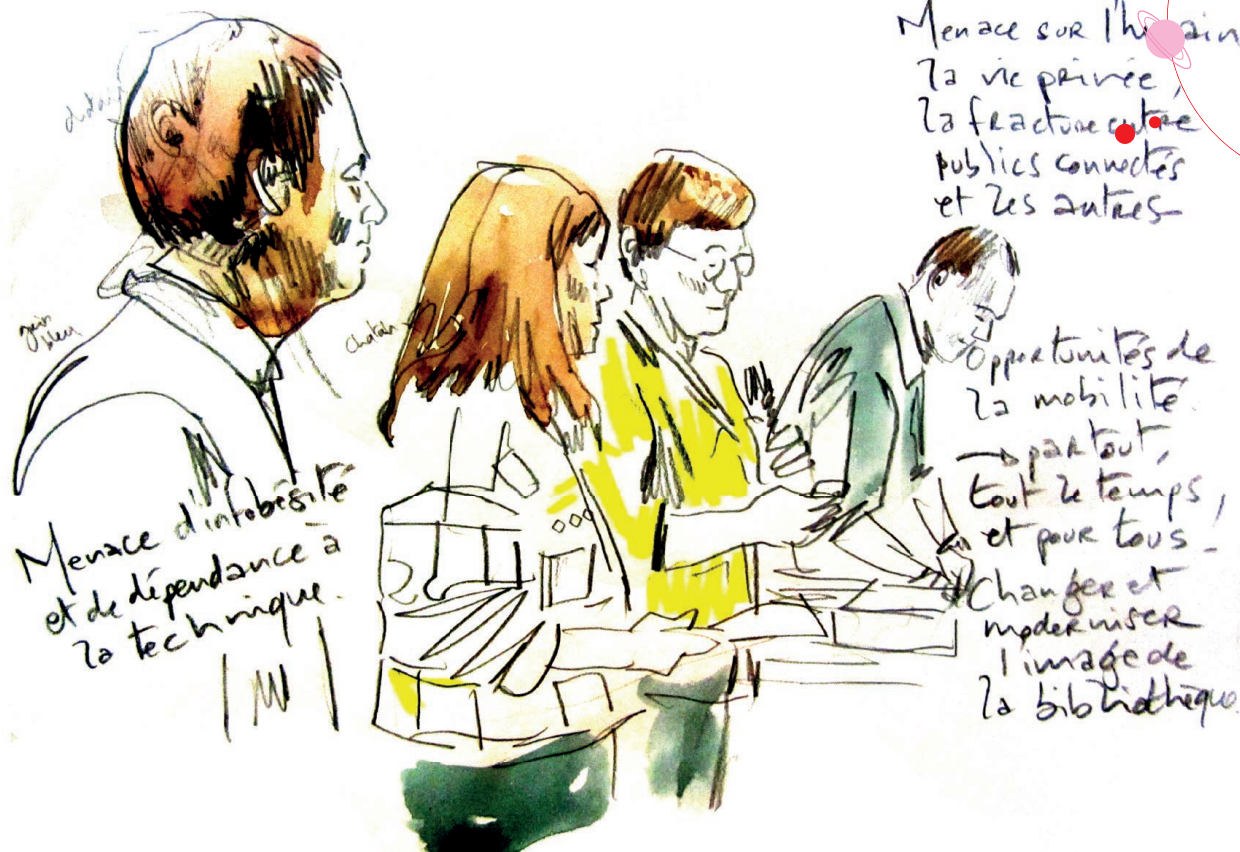 Menace sur l'humain
la vie privée,
la fracture entre
publics connectés
et les autres
Opportunités de
la mobilité.
→ partout,
tout le temps,
et pour tous
Changer et
moderniser
l'image de
la bibliothèque
Menace d'infobésité
et de dépendance à
la technique.
chatain